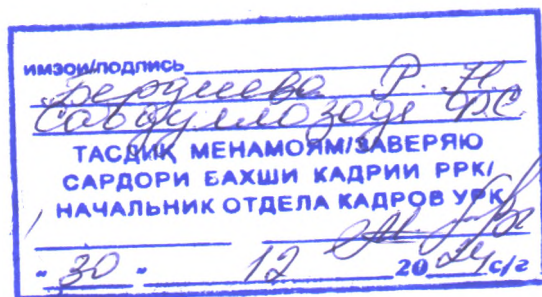 ИМЗОИ/ПОДПИСЬ
Бердиева Р. Н.
Сабдуллозода Ф.С.
ТАСДИҚ МЕНАМОЯМ/ЗАВЕРЯЮ
САРДОРИ БАХШИ КАДРИИ РРК/
НАЧАЛЬНИК ОТДЕЛА КАДРОВ УРК
"30" 12 2024 с/г